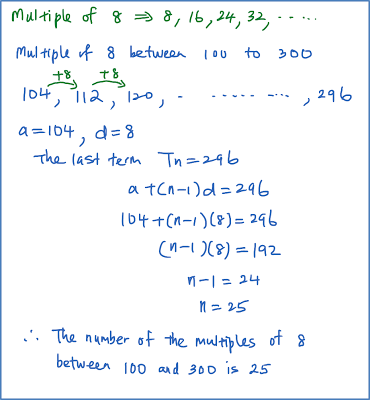 Multiple of 8 ⇒ 8, 16, 24, 32, ......
Multiple of 8 between 100 to 300
+8 +8
104, 112, 120, - ...... ...., 296
a = 104, d = 8
The last term Tn = 296
a + (n-1)d = 296
104 + (n-1)(8) = 296
(n-1)(8) = 192
n-1 = 24
n = 25
∴ The number of the multiples of 8
between 100 and 300 is 25